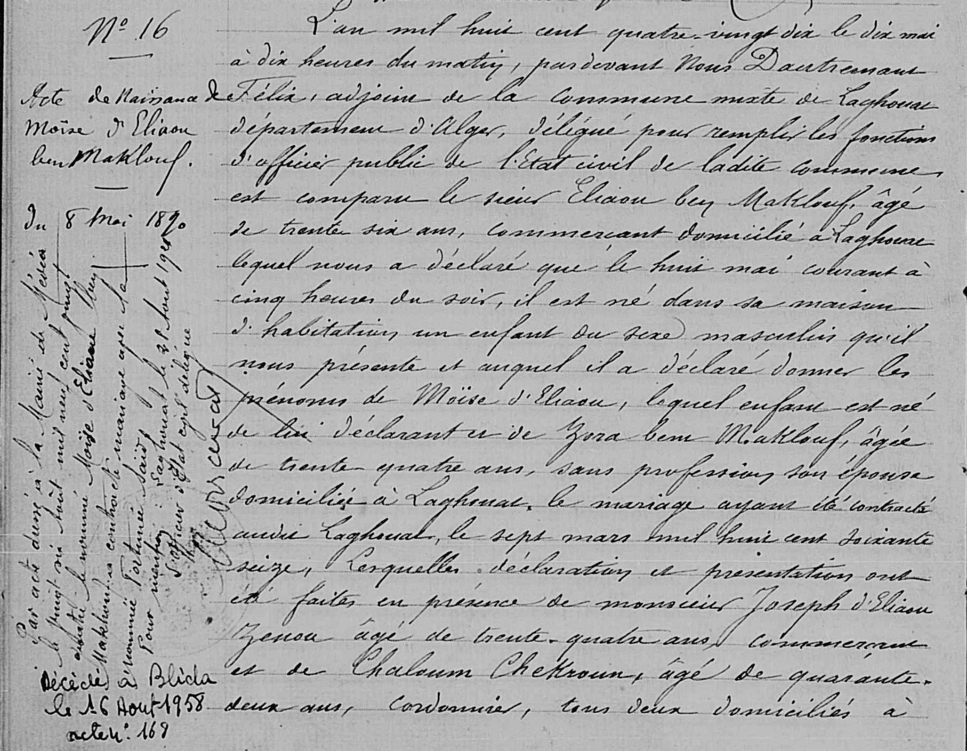 N° 16
Acte de Naissance de
Moïse d'Eliaou
ben Maklouf.
du 8 Mai 1890
L'an mil huit cent quatre-vingt dix le dix mai
à dix heures du matin, pardevant Nous Dautremant
Félix, adjoint de la commune mixte de Laghouat
département d'Alger, délégué pour remplir les fonctions
d'officier public de l'Etat civil de ladite commune
est comparu le sieur Eliaou ben Maklouf, âgé
de trente six ans, commercant domicilié à Laghouat
lequel nous a déclaré que le huit mai courant à
cinq heures du soir, il est né dans sa maison
d'habitation un enfant du sexe masculin qu'il
nous présente et auquel il a déclaré donner les
prénoms de Moïse d'Eliaou, lequel enfant est né
de lui déclarant et de Zora bent Maklouf, âgée
de trente quatre ans, sans profession son épouse
domiciliée à Laghouat, le mariage ayant été contracté
audit Laghouat, le sept mars mil huit cent soixante
seize, Lesquelles déclaration et présentation ont
été faites en présence de monsieur Joseph d'Eliaou
Zenou âgé de trente-quatre ans, commercant
et de Chaloum Chekroun, âgé de quarante-
deux ans, cordonnier, tous deux domiciliés à
Par acte dressé à la Mairie de Médéa
le vingt six Août mil neuf cent vingt
le nommé Moïse d'Eliaou ben
Makhlouf a contracté mariage avec la
nommée Fortunée Saïd
Pour mention: Laghouat le 28 Août 1920
l'officier d'Etat civil délégué
Décédé à Blida
le 16 Aout 1958
acte n° 169